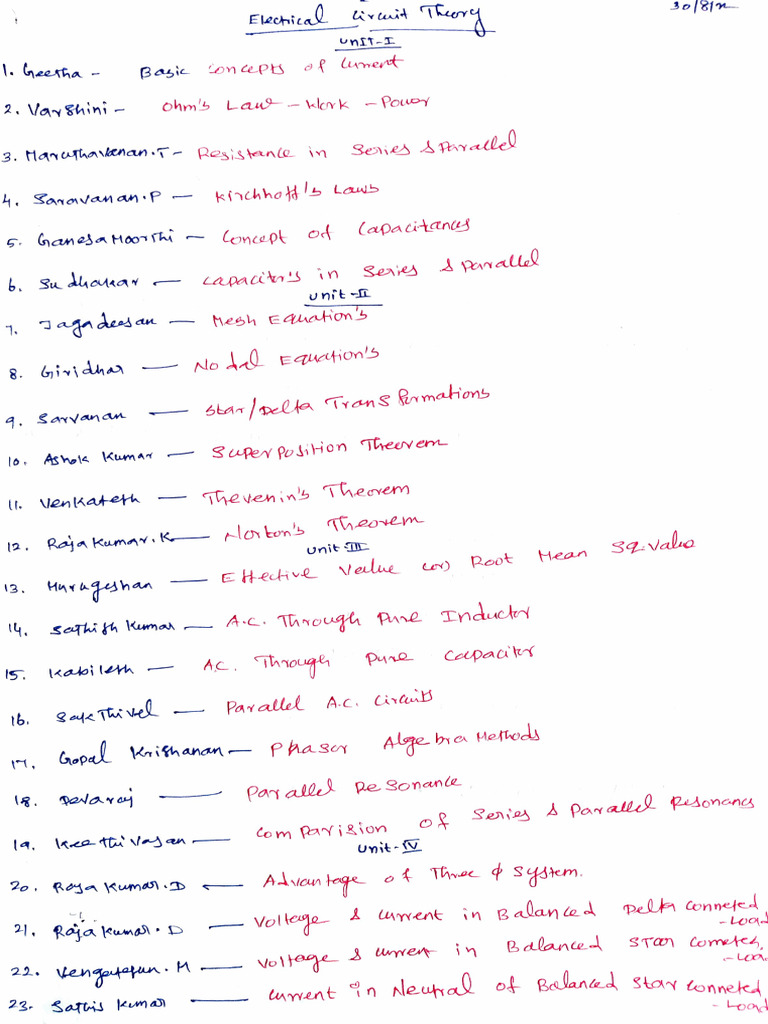 Electrical Circuit Theory
30/8/12
Unit-I
1. Geetha - Basic Concepts of Current
2. Varshini - Ohm's Law - Work - Power
3. Maruthavanan.T - Resistance in Series & Parallel
4. Saravanan.P - Kirchhoff's Laws
5. Ganesa Moorthi - Concept of Capacitances
6. Sudhakar - Capacitr's in Series & Parallel
Unit-II
7. Jagadeesan - Mesh Equation's
8. Giridhar - Nodal Equation's
9. Sarvanan - Star/Delta Transformations
10. Ashok Kumar - Superposition Theorem
11. Venkatesh - Thevenin's Theorem
12. Raja Kumar.K - Norton's Theorem
Unit-III
13. Murugeshan - Effective Value (or) Root Mean Sq.Value
14. Sathish Kumar - A.C. Through Pure Inductor
15. Kabilesh - A.C. Through Pure Capacitor
16. Sakthivel - Parallel A.C. Circuits
17. Gopal Krishanan - Phasor Algebra Methods
18. Devaraj - Parallel Resonance
19. Keethivasan - Comparision of Series & Parallel Resonancs
Unit-IV
20. Raja Kumar.D - Advantage of Three ϕ System.
21. Raja Kumar.D - Voltage & Current in Balanced Delta conneted - Load
22. M - Voltage & Current in Balanced STAR - Loa
23. Sathis Kumar - Current in Neutral of Balanced Star conneted - Load